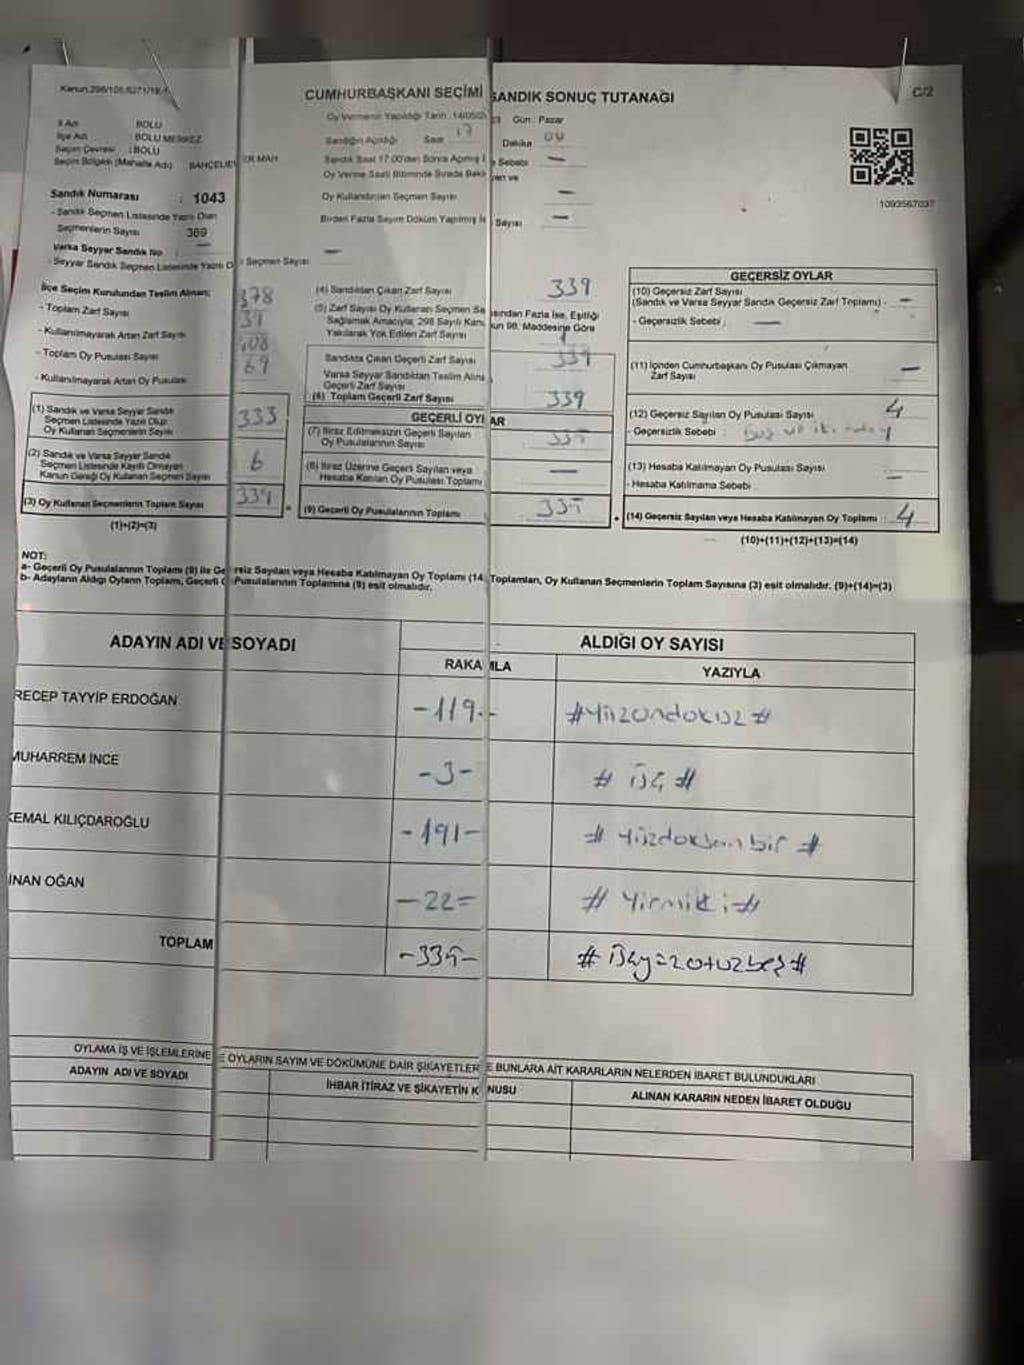 CUMHURBAŞKANI SEÇİMİ SANDIK SONUÇ TUTANAĞI
C/2
Oy Vermenin Yapıldığı Tarih : 14/05/
Gün : Pazar
İl Adı : BOLU
İlçe Adı : BOLU MERKEZ
Seçim Çevresi : BOLU
Seçim Bölgesi (Mahalle Adı) BAHÇELİEV ER MAH
Sandığın Açıldığı Saat 17 Dakika 00
Oy Kullandırılan Seçmen Sayısı —
1093567037
Sandık Numarası : 1043
- Sandık Seçmen Listesinde Yazılı Olan
Seçmenlerin Sayısı 369
Varsa Seyyar Sandık No : —
- Seyyar Sandık Seçmen Listesinde Yazılı O Seçmen Sayısı —
İlçe Seçim Kurulundan Teslim Alınan;
- Toplam Zarf Sayısı 378
- Kullanılmayarak Artan Zarf Sayısı
- Toplam Oy Pusulası Sayısı 408
- Kullanılmayarak Artan Oy Pusulası 69
(1) Sandık ve Varsa Seyyar Sandık
Seçmen Listesinde Yazılı Olup
Oy Kullanan Seçmenlerin Sayısı 333
(2) Sandık ve Varsa Seyyar Sandık
Seçmen Listesinde Kayıtlı Olmayan
Kanun Gereği Oy Kullanan Seçmen Sayısı 6
(3) Oy Kullanan Seçmenlerin Toplam Sayısı 339
(1)+(2)=(3)
(4) Sandıktan Çıkan Zarf Sayısı 339
(5) Zarf Sayısı Oy Kullanan Seçmen Sa ısından Fazla İse, Eşitliği
Sağlamak Amacıyla, 298 Sayılı Kanu un 98. Maddesine Göre
Yakılarak Yok Edilen Zarf Sayısı
Sandıkta Çıkan Geçerli Zarf Sayısı 339
Varsa Seyyar Sandıktan Teslim Alına
Geçerli Zarf Sayısı
(6) Toplam Geçerli Zarf Sayısı 339
GEÇERLİ OYLAR
(7) İtiraz Edilmeksizin Geçerli Sayılan
Oy Pusulalarının Sayısı 335
(8) İtiraz Üzerine Geçerli Sayılan veya
Hesaba Katılan Oy Pusulası Toplamı —
(9) Geçerli Oy Pusulalarının Toplamı 335
GEÇERSİZ OYLAR
(10) Geçersiz Zarf Sayısı
(Sandık ve Varsa Seyyar Sandık Geçersiz Zarf Toplamı) - —
- Geçersizlik Sebebi : —
(11) İçinden Cumhurbaşkanı Oy Pusulası Çıkmayan
Zarf Sayısı —
(12) Geçersiz Sayılan Oy Pusulası Sayısı 4
- Geçersizlik Sebebi :
(13) Hesaba Katılmayan Oy Pusulası Sayısı —
- Hesaba Katılmama Sebebi :
(14) Geçersiz Sayılan veya Hesaba Katılmayan Oy Toplamı : 4
(10)+(11)+(12)+(13)=(14)
NOT:
a- Geçerli Oy Pusulalarının Toplamı (9) ile Geçersiz Sayılan veya Hesaba Katılmayan Oy Toplamı (14) Toplamları, Oy Kullanan Seçmenlerin Toplam Sayısına (3) eşit olmalıdır. (9)+(14)=(3)
b- Adayların Aldığı Oyların Toplamı, Geçerli Oy Pusulalarının Toplamına (9) eşit olmalıdır.
ADAYIN ADI VE SOYADI
ALDIĞI OY SAYISI
RAKAMLA
YAZIYLA
RECEP TAYYİP ERDOĞAN -119- #Yüzondokuz#
MUHARREM İNCE -3- # Üç #
KEMAL KILIÇDAROĞLU -191- # Yüzdoksanbir #
İNAN OĞAN -22= # Yirmiiki #
TOPLAM -335- # Üçyüzotuzbeş#
OYLAMA İŞ VE İŞLEMLERİNE E OYLARIN SAYIM VE DÖKÜMÜNE DAİR ŞİKAYETLER E BUNLARA AİT KARARLARIN NELERDEN İBARET BULUNDUKLARI
ADAYIN ADI VE SOYADI
İHBAR İTİRAZ VE ŞİKAYETİN KONUSU
ALINAN KARARIN NEDEN İBARET OLDUĞU